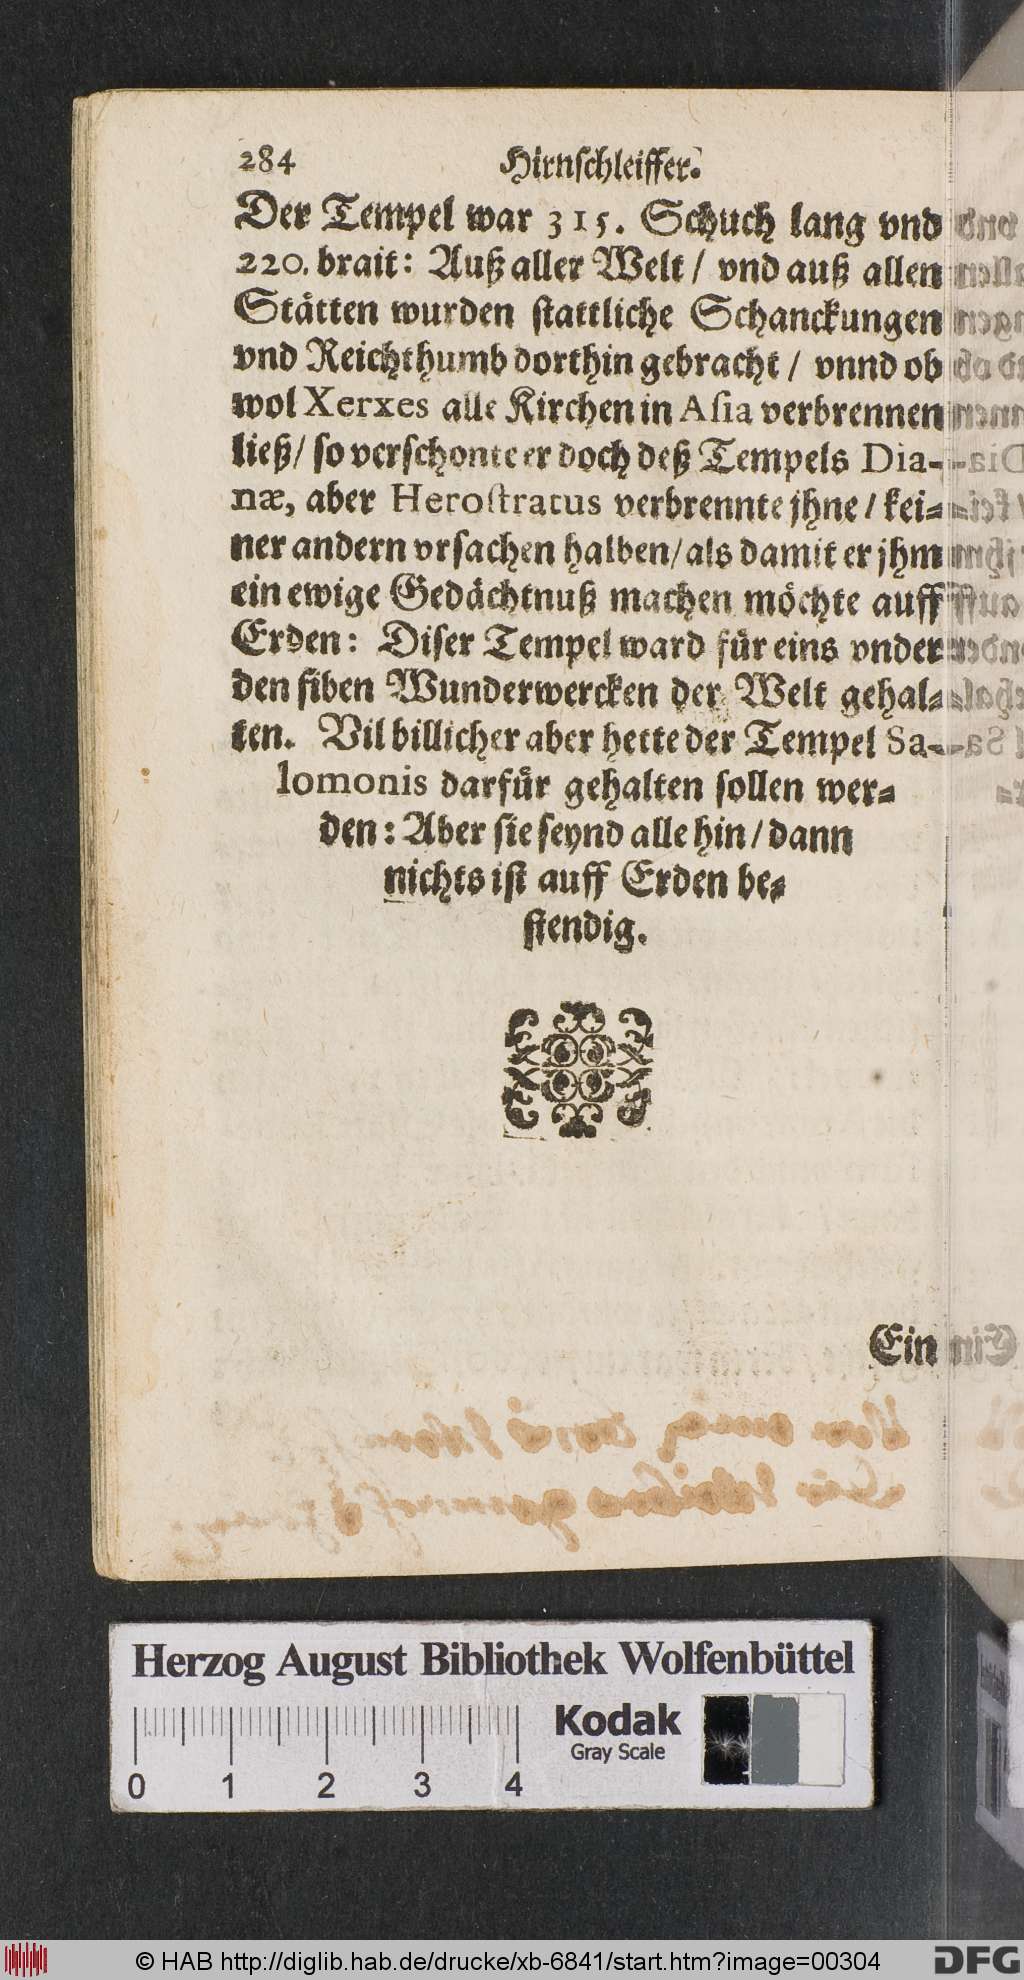 284 Hirnschleiffer.
Der Tempel war 315. Schuch lang vnd
220. brait: Auß aller Welt / vnd auß allen
Stätten wurden stattliche Schanckungen
vnd Reichthumb dorthin gebracht / vnnd ob
wol Xerxes alle Kirchen in Asia verbrennen
ließ / so verschonte er doch deß Tempels Dia-
næ, aber Herostratus verbrennte jhne / kei-
ner andern vrsachen halben / als damit er jhm
ein ewige Gedächtnuß machen möchte auff
Erden: Diser Tempel ward für eins vnder
den siben Wunderwercken der Welt gehal-
ten. Vil billicher aber hette der Tempel Sa-
lomonis darfür gehalten sollen wer-
den: Aber sie seynd alle hin / dann
nichts ist auff Erden be-
stendig.
Ein
Herzog August Bibliothek Wolfenbüttel
Kodak
Gray Scale
0 1 2 3 4
© HAB http://diglib.hab.de/drucke/xb-6841/start.htm?image=00304
DFG